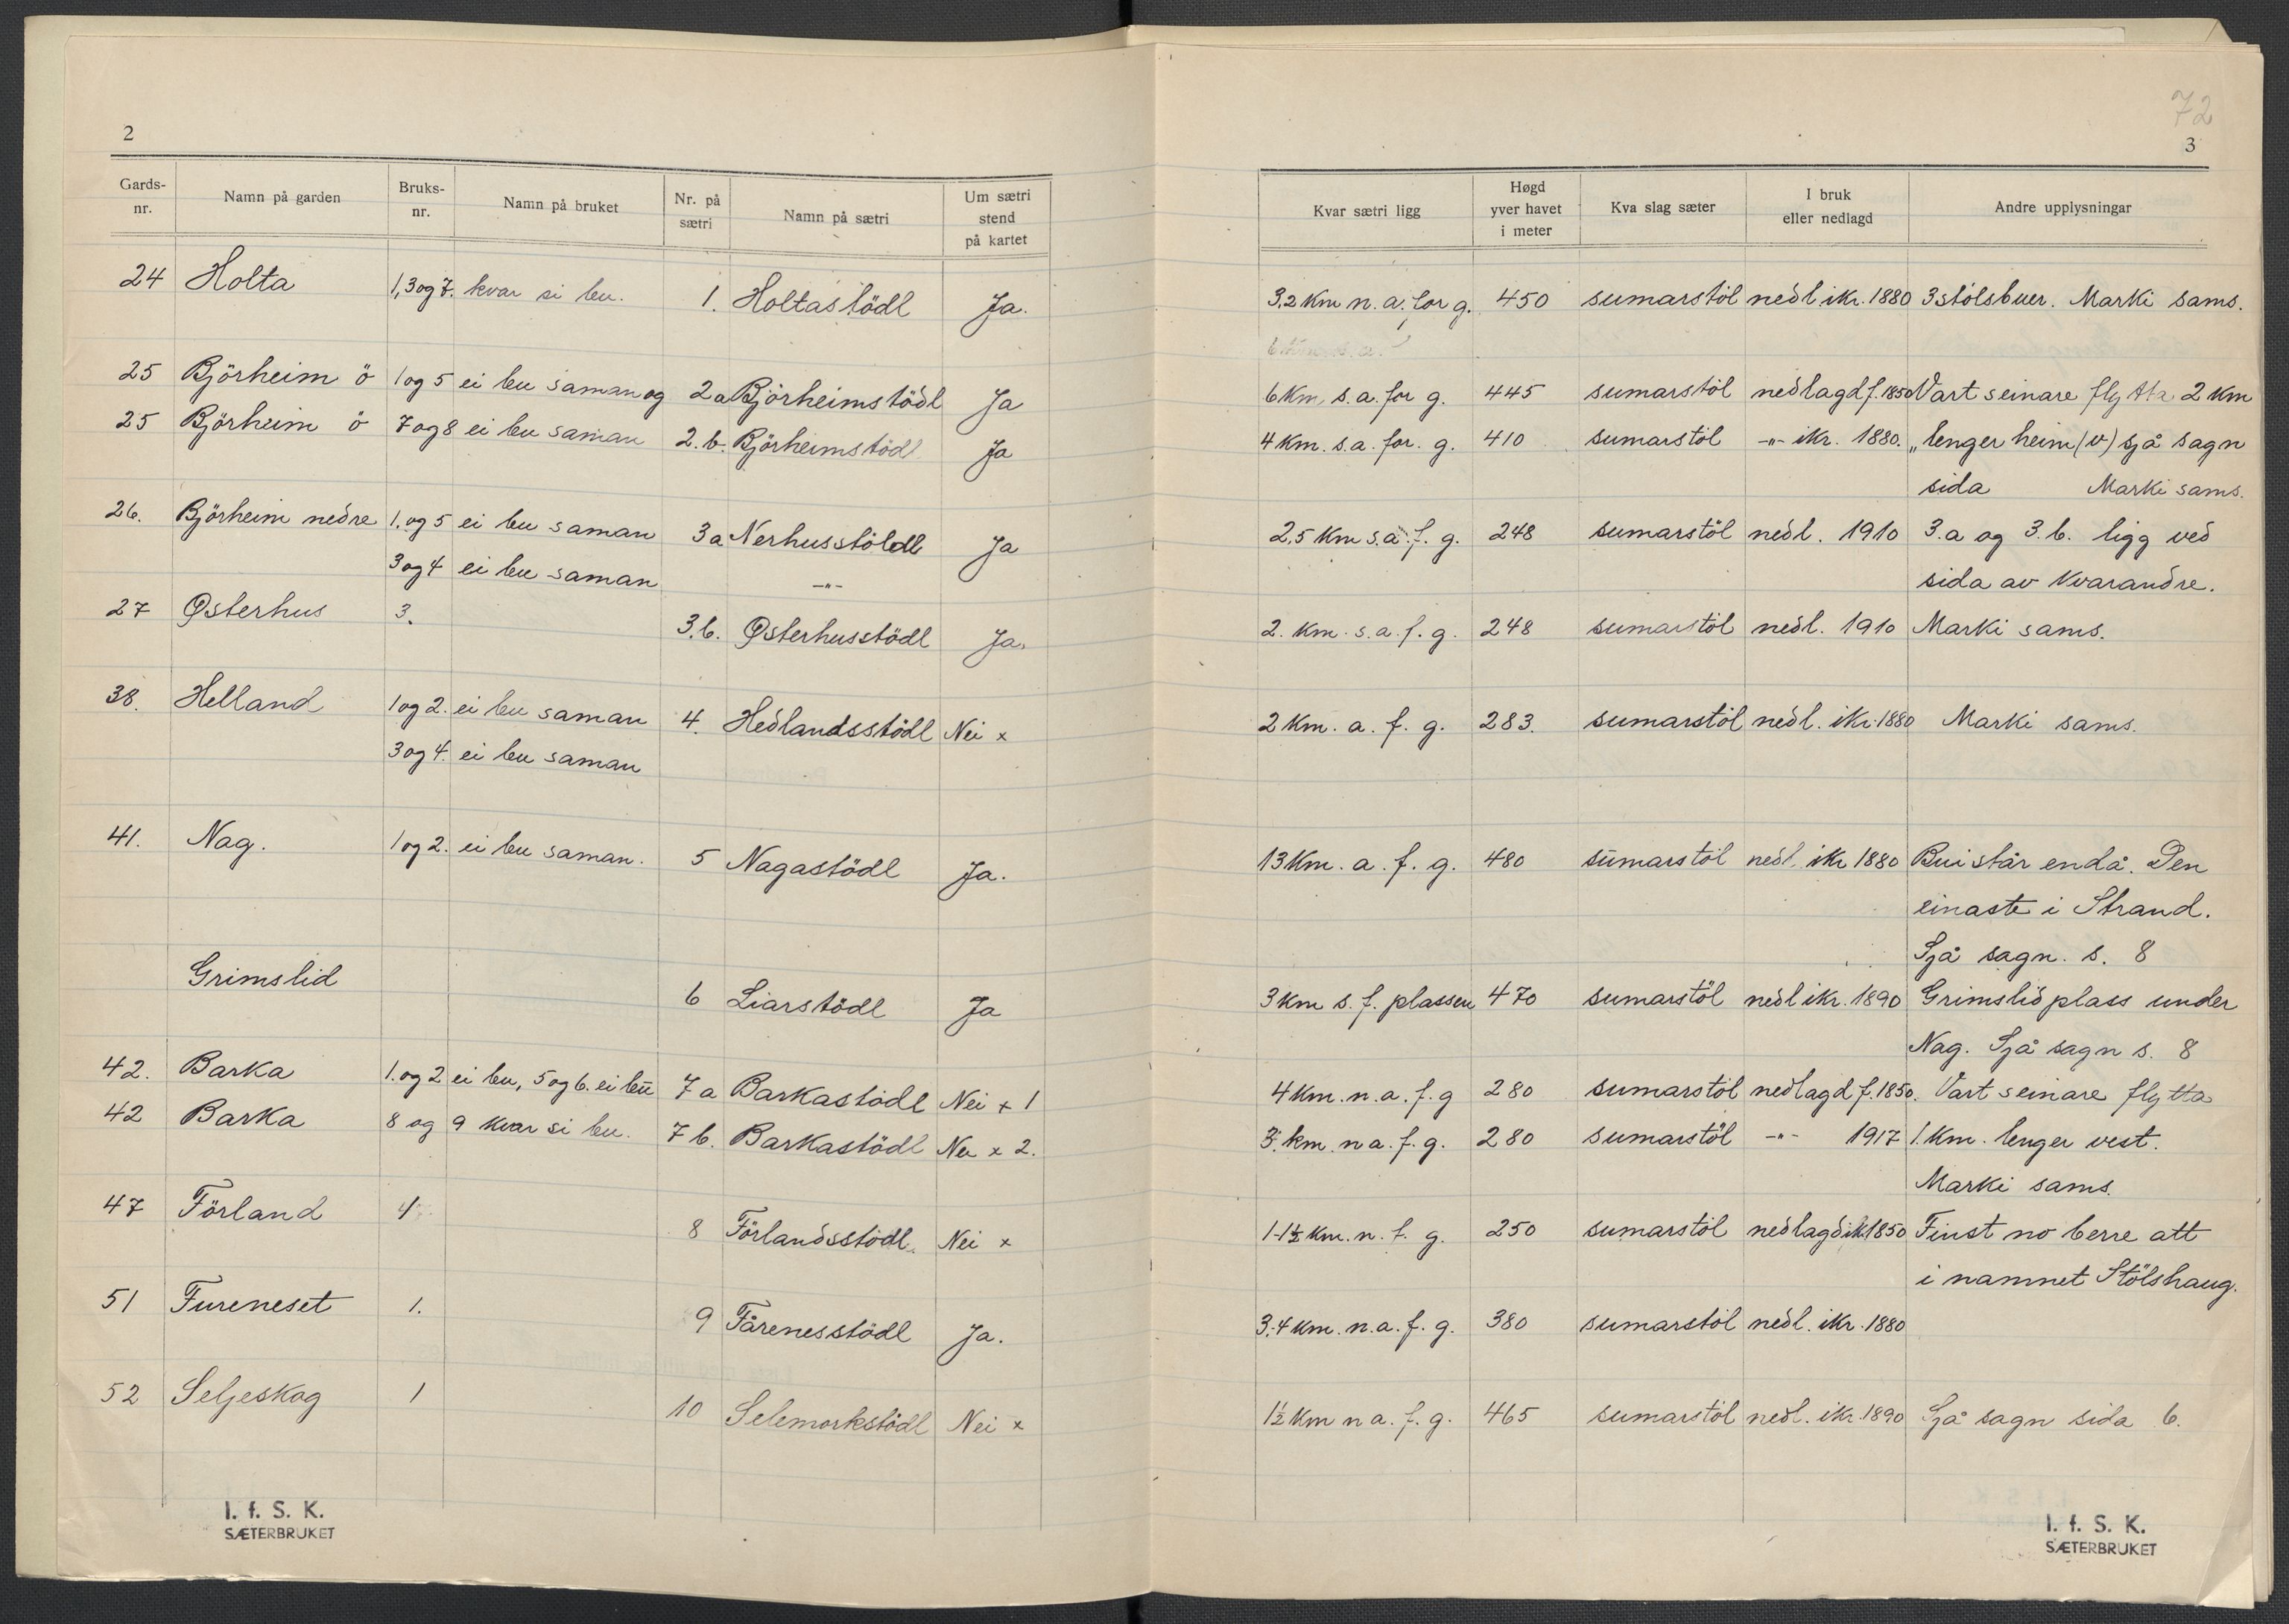 2
Gards-nr. Namn på garden Bruks-nr. Namn på bruket Nr. på sætri Namn på sætri Um sætri stend på kartet
24 Holta 1,3og7. kvar si bu. 1. Holtastödl Ja.
25 Björheim ö 1og5 ei bu saman og 2a Björheimstödl Ja
25 Björheim ö 7og8 ei bu saman 2.b. Björheimstödl Ja
26. Björheim nedre 1.og5 ei bu saman 3a Nerhusstöldl Ja
3og4 ei bu saman -"-
27 Østerhus 3. 3.b. Østerhusstödl Ja.
38. Helland 1og2. ei bu saman 4. Hedlandsstödl Nei x
3og4. ei bu saman
41. Nag. 1og2. ei bu saman. 5 Nagastödl Ja.
Grimslid 6 Liarstödl Ja
42. Barka 1.og2 ei bu, 5og6. ei bu 7a Barkastödl Nei x 1
42 Barka 8 og 9 kvar si bu. 7b. Barkastödl Nei x 2.
47 Förland 4 8 Förlandsstödl. Nei x
51 Fureneset 1. 9 Fårenesstödl Ja.
52 Seljeskog 1 10 Selemorkstödl Nei x
I. f. S. K.
SÆTERBRUKET
72
3
Kvar sætri ligg Høgd yver havet i meter Kva slag sæter I bruk eller nedlagd Andre upplysningar
3,2 Km n.a. for g. 450 sumarstöl nedl ikr. 1880 3 stölsbuer. Marki sams.
6 Km. s.a. for g. 445 sumarstöl nedlagd f. 1850 Vart seinare flytta 2 Km
4 Km. s.a. for. g. 410 sumarstöl -"- ikr. 1880. „lenger heim (v) sjå sagn
sida Marki sams.
2,5 Km s.a. f. g. 248 sumarstöl nedl. 1910 3.a og 3.b. ligg ved
sida av Kvarandre.
2. Km. s.a. f. g. 248 sumarstöl nedl. 1910 Marki sams.
2 Km. a. f. g. 283. sumarstöl nedl. ikr. 1880 Marki sams.
13 Km. a. f. g. 480 sumarstöl nedl. ikr 1880 Bui står endå. Den
einaste i Strand.
Sjå sagn. s. 8
3 Km s. f. plassen 470 sumarstöl nedl ikr. 1890 Grimslid plass under
Nag. Sjå sagn s. 8
4 Km. n.a. f. g 280 sumarstöl nedlagd f. 1850. Vart seinare flytta
3. km. n a. f. g. 280 sumarstöl -"- 1917 1. Km. lenger vest.
Marki sams.
1-1½ Km. n. f. g. 250 sumarstöl nedlagd ik. 1850 Finst no berre att
i namnet Stölshaug.
3.4 Km. n.a. f. g. 380 sumarstöl nedl. ikr. 1880
1½ Km n a. f. g. 465 sumarstöl nedl. ikr. 1890 Sjå sagn sida 6.
I. f. S. K.
SÆTERBRUKET